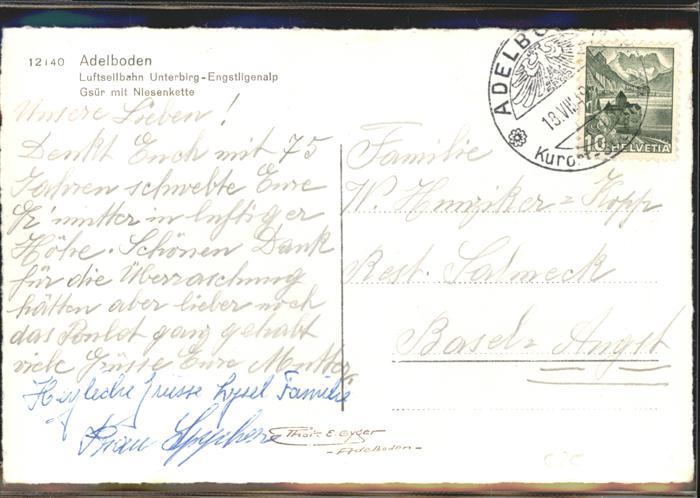 12140 Adelboden
Luftseilbahn Unterbirg-Engstligenalp
Gsür mit Niesenkette
Unsere Lieben!
Denkt Euch mit 75
Jahren schwebte Eure
Gr'mutter in luftiger
Höhe. Schönen Dank
für die Überraschung
hätten aber lieber noch
das Poulet ganz gehabt
viele Grüsse Eure Mutter.
Herzliche Grüsse Familie
Frau
Familie
W. Hunziker=Kopp
Rest. Salmeck
Basel= Augst
ADELBODEN
Kurort
10 HELVETIA
Photo E. Gyger
-Adelboden-